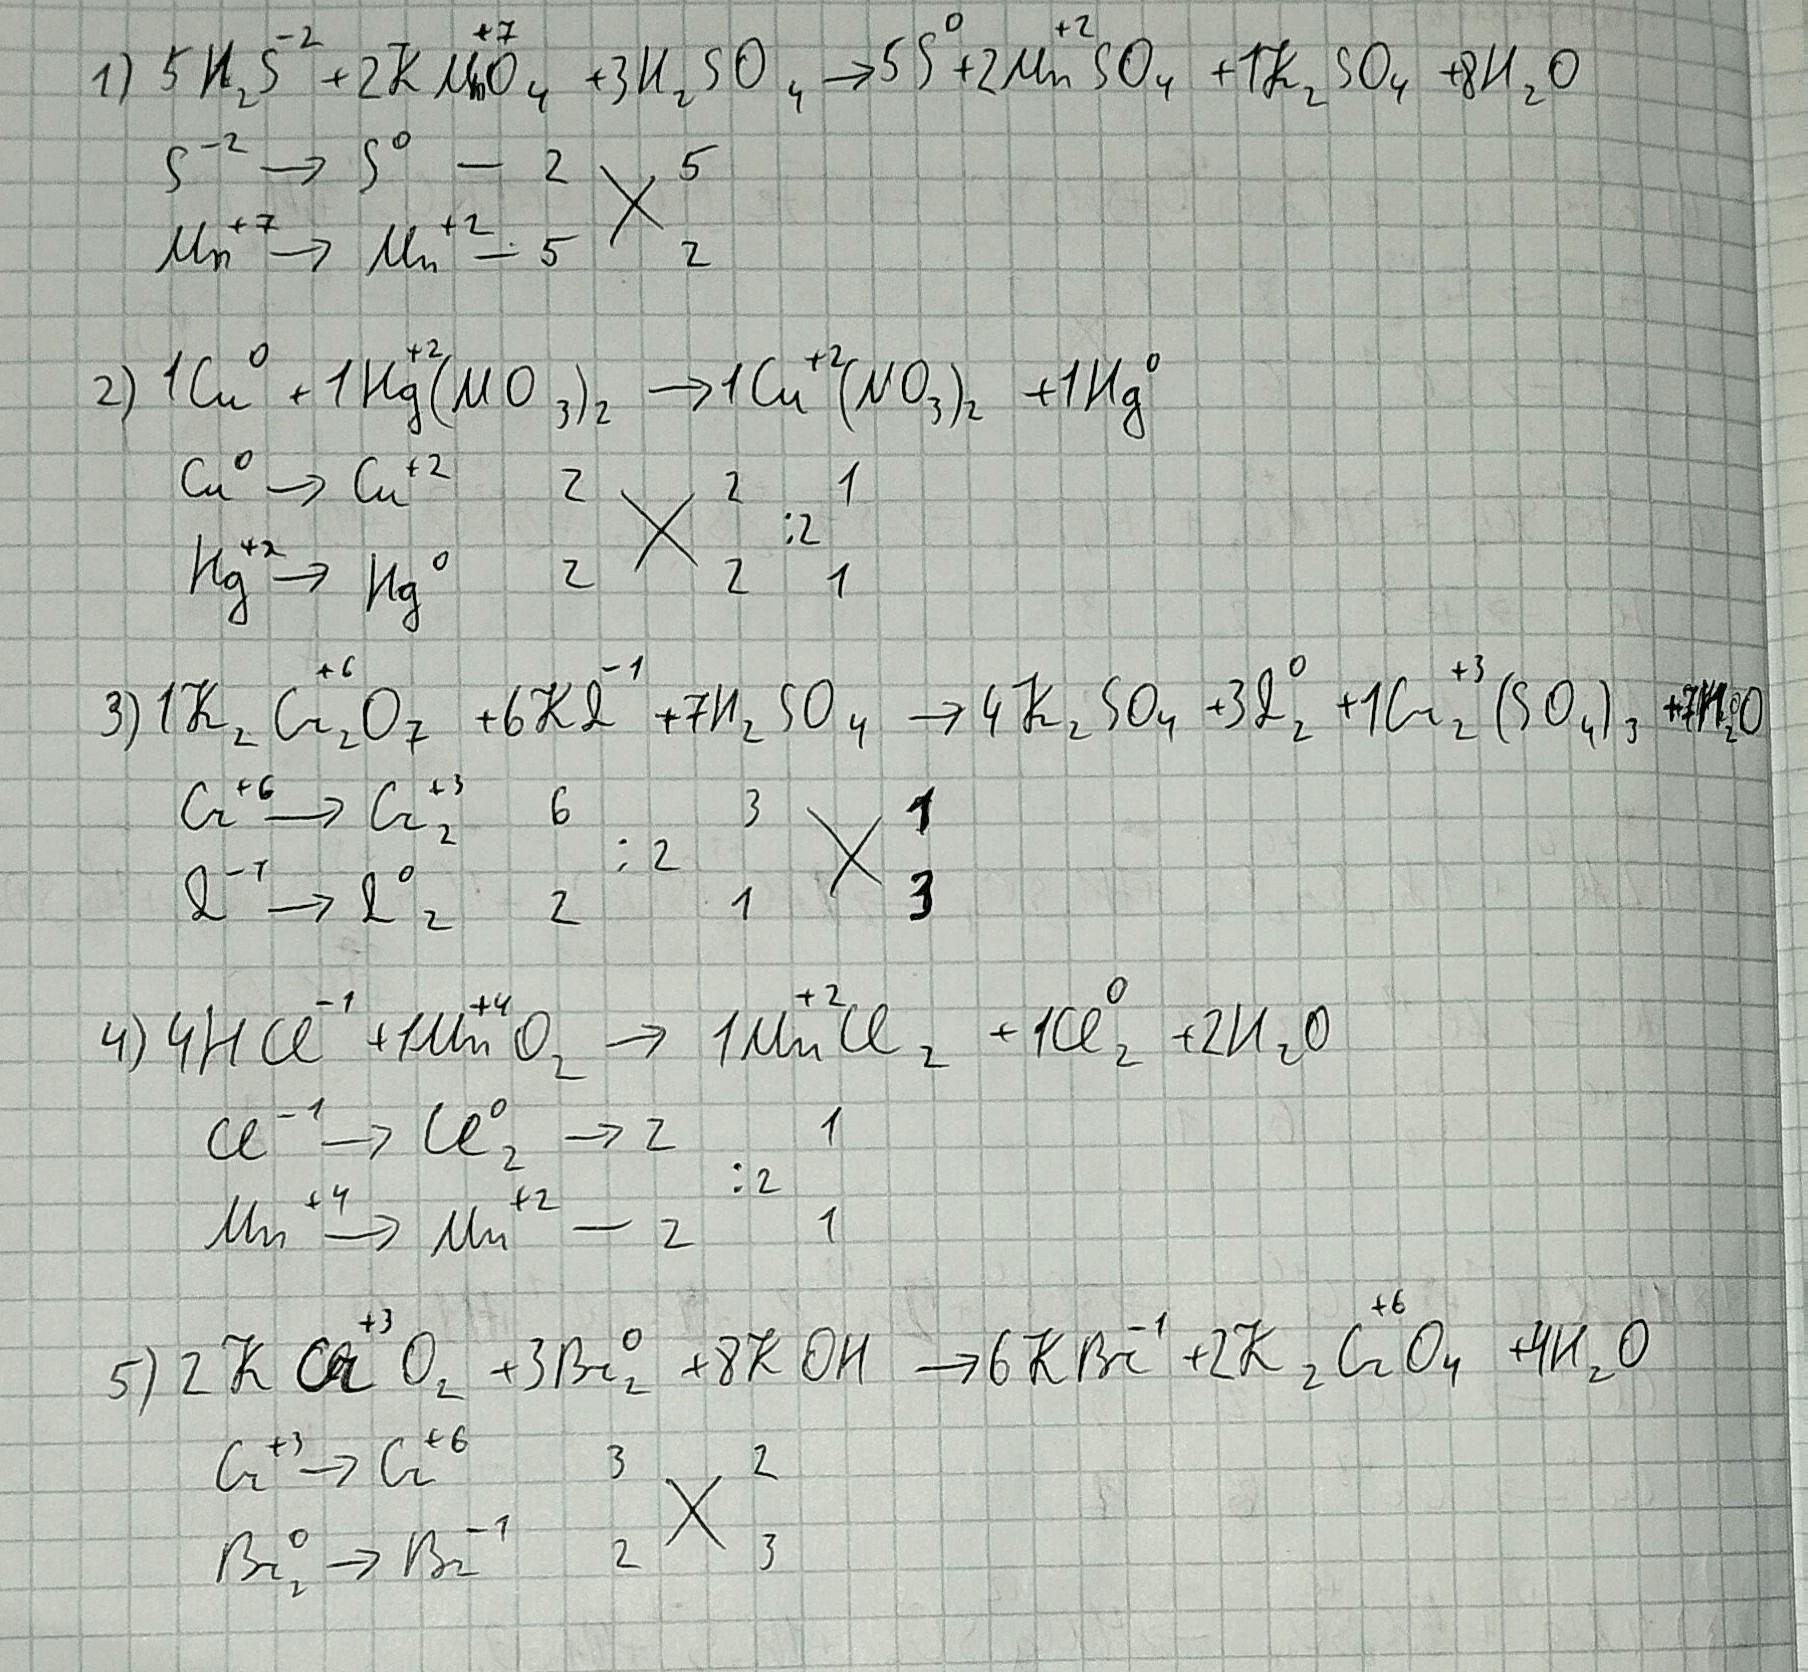 1) 5H₂S⁻² + 2KMn⁺⁷O₄ + 3H₂SO₄ → 5S⁰ + 2Mn⁺²SO₄ + 1K₂SO₄ + 8H₂O
S⁻² → S⁰ — 2 5
Mn⁺⁷ → Mn⁺² — 5 2
2) 1Cu⁰ + 1Hg⁺²(NO₃)₂ → 1Cu⁺²(NO₃)₂ + 1Hg⁰
Cu⁰ → Cu⁺² 2 2 1
:2
Hg⁺² → Hg⁰ 2 2 1
3) 1K₂Cr₂⁺⁶O₇ + 6KI⁻¹ + 7H₂SO₄ → 4K₂SO₄ + 3I₂⁰ + 1Cr₂⁺³(SO₄)₃ + 7H₂O
Cr⁺⁶ → Cr₂⁺³ 6 3 1
:2
I⁻¹ → I₂⁰ 2 1 3
4) 4HCl⁻¹ + 1Mn⁺⁴O₂ → 1Mn⁺²Cl₂ + 1Cl₂⁰ + 2H₂O
Cl⁻¹ → Cl₂⁰ → 2 1
:2
Mn⁺⁴ → Mn⁺² — 2 1
5) 2KCr⁺³O₂ + 3Br₂⁰ + 8KOH → 6KBr⁻¹ + 2K₂Cr⁺⁶O₄ + 4H₂O
Cr⁺³ → Cr⁺⁶ 3 2
Br₂⁰ → Br⁻¹ 2 3